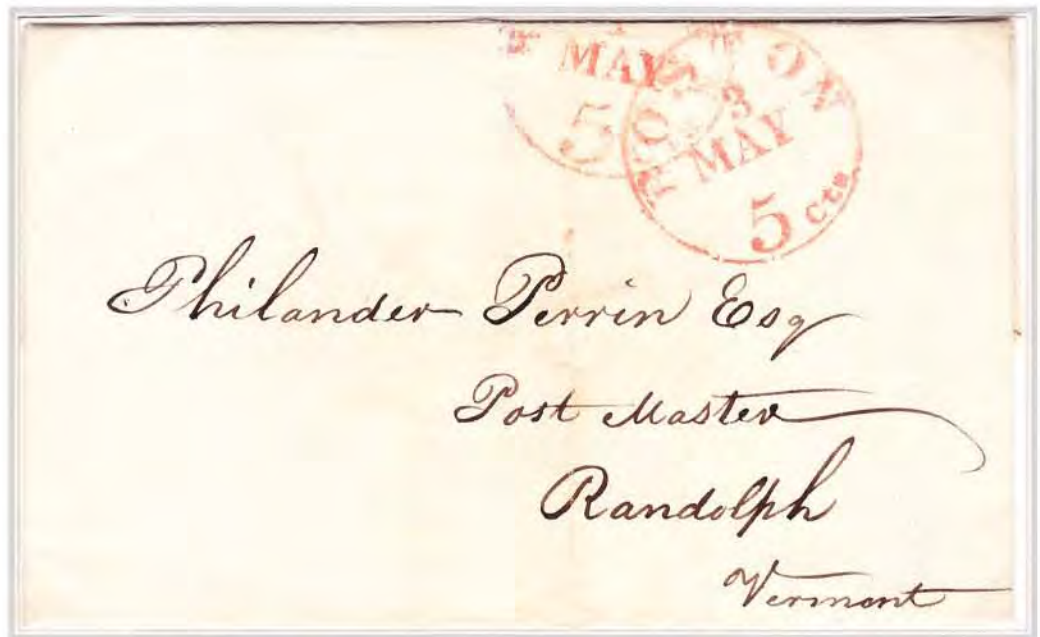 MAY
5
BOSTON
3
MAY
5 cts
Philander Perrin Esq
Post Master
Randolph
Vermont